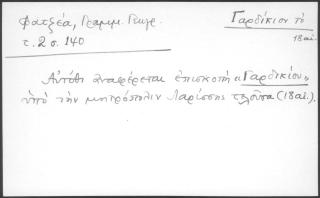 Φατζέα, Γραμμ. Γεωγρ.
τ. 2 σ. 140
Γαρδίκιον τὸ
18 αἰ.
Αὐτόθι ἀναφέρεται ἐπισκοπὴ «Γαρδικίου»
ὑπὸ τὴν μητρόπολιν Λαρίσσης τελοῦσα (18 αἰ.).